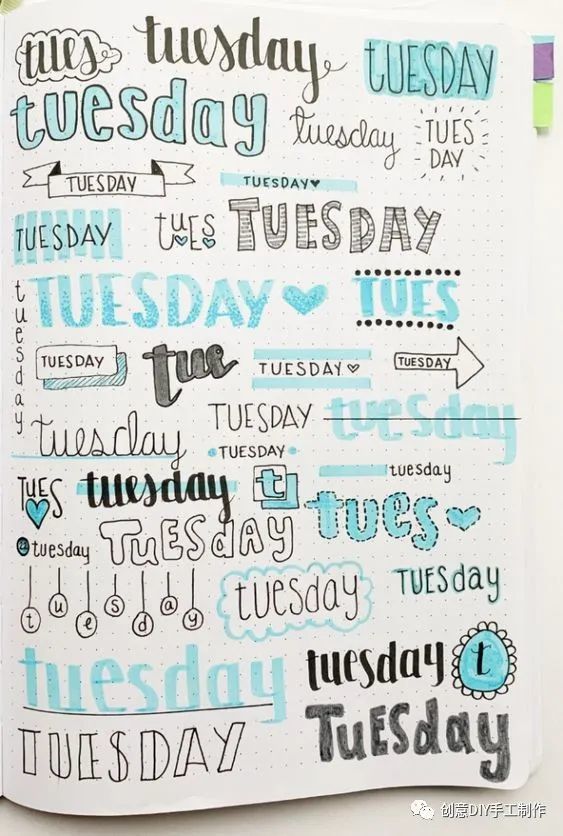 tues tuesday TUESDAY
tuesday tuesday TUES
DAY
TUESDAY TUESDAY
TUESDAY tuES TUESDAY
TUESDAY TUES
tuesday
TUESDAY tue TUESDAY TUESDAY
TUESDAY tuesday
tuesday TUESDAY
tuesday
TUES tuesday t tues
tuesday TUESdAY
tuesday tuesday TUESday
tuesday tuesday t
TUESDAY TuESday
创意DIY手工制作